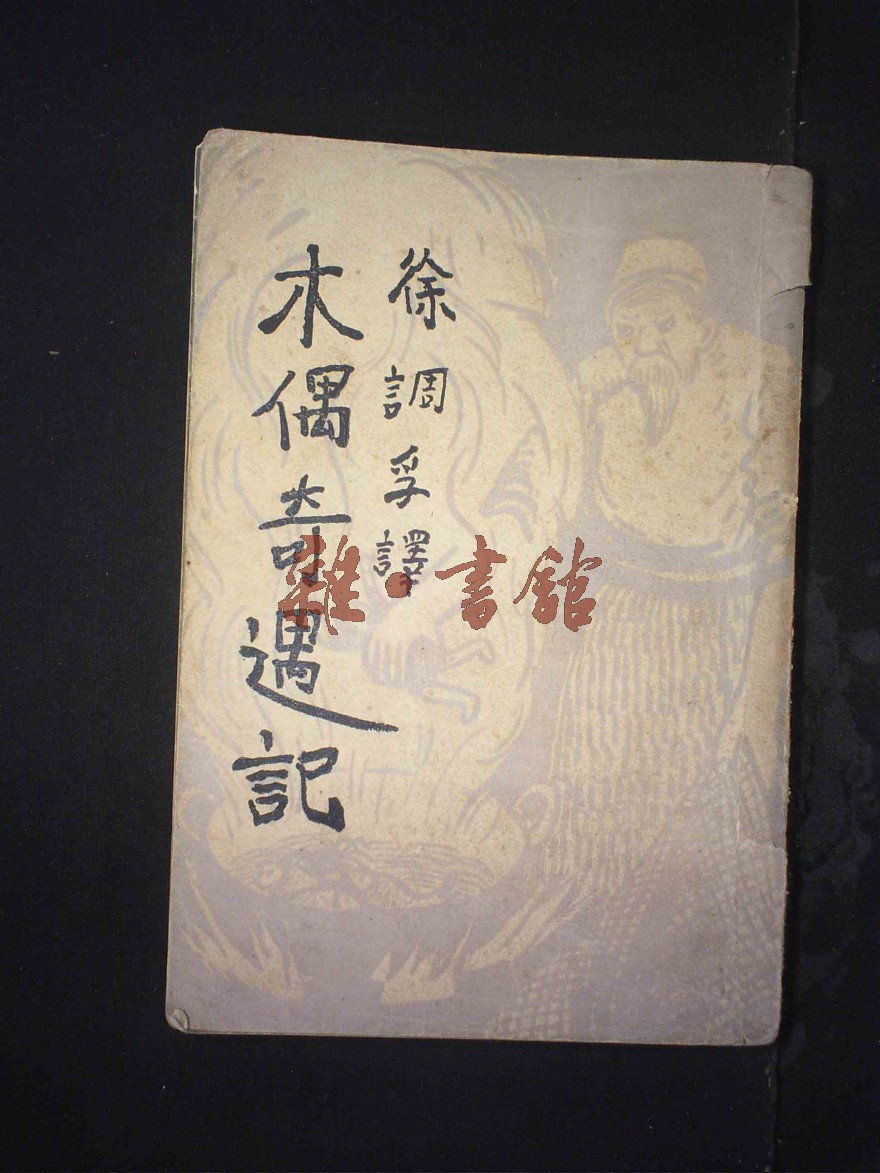 徐調孚譯
木偶奇遇記
雜·書館